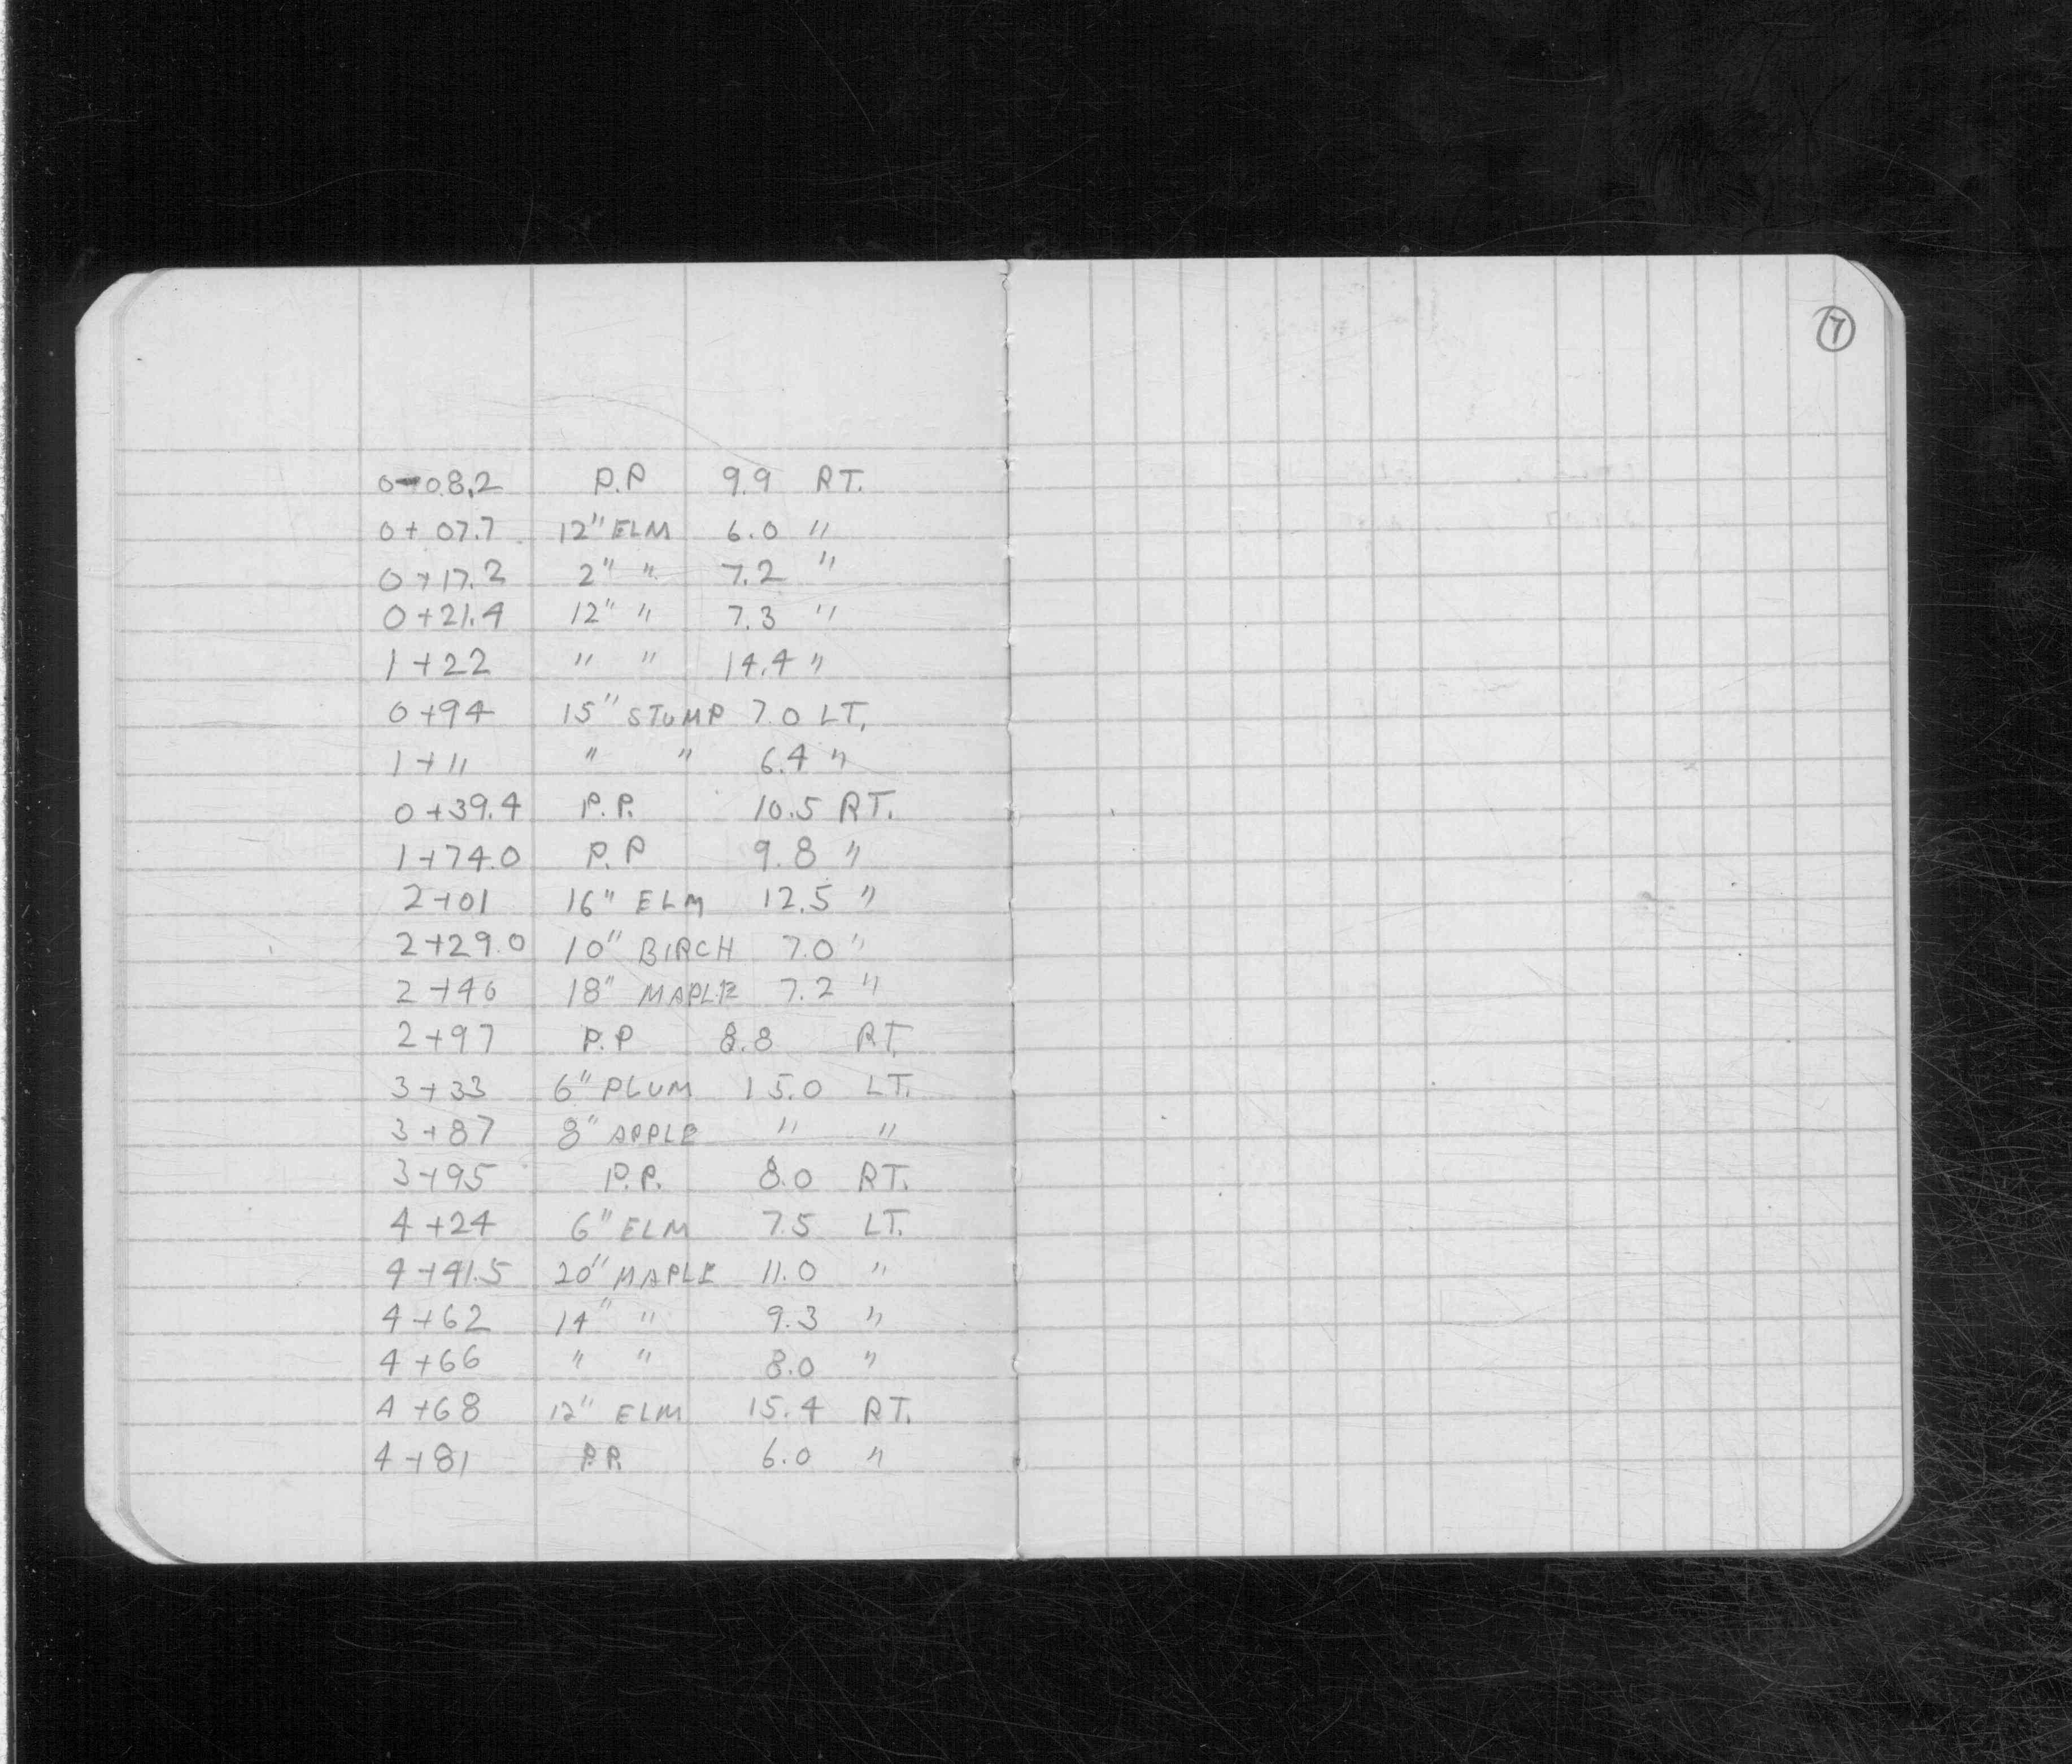 7
0-08.2 P.P 9.9 RT.
0+07.7 12" ELM 6.0 "
0+17.2 2" " 7.2 "
0+21.4 12" " 7.3 "
1+22 " " 14.4 "
0+94 15" STUMP 7.0 LT.
1+11 " " 6.4 "
0+39.4 P.P. 10.5 RT.
1+74.0 P.P 9.8 "
2+01 16" ELM 12.5 "
2+29.0 10" BIRCH 7.0 "
2+46 18" MAPLE 7.2 "
2+97 P.P 8.8 RT.
3+33 6" PLUM 15.0 LT.
3+87 8" APPLE " "
3+95 P.P. 8.0 RT.
4+24 6" ELM 7.5 LT.
4+41.5 20" MAPLE 11.0 "
4+62 14" " 9.3 "
4+66 " " 8.0 "
4+68 12" ELM 15.4 RT.
4+81 P.P. 6.0 "